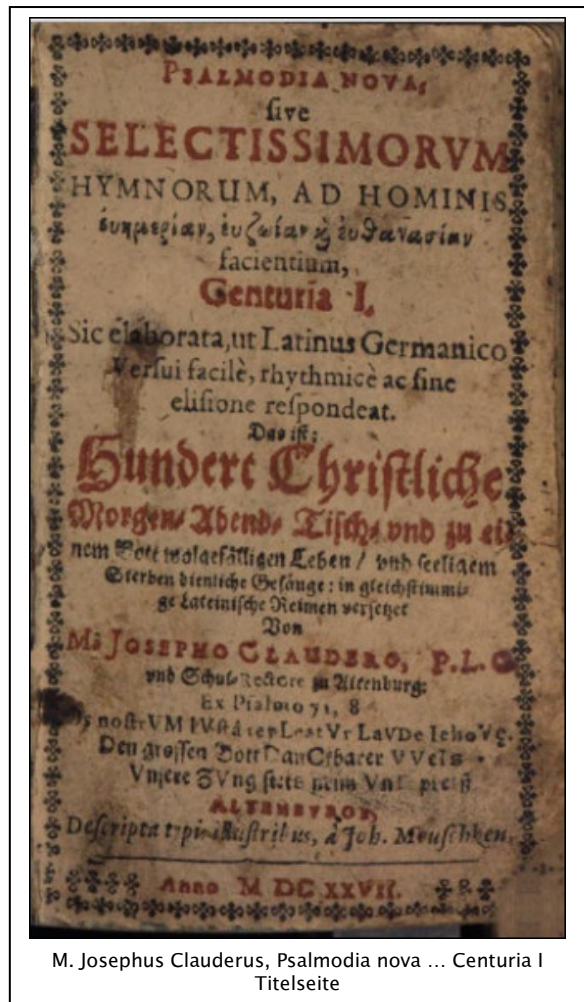 PSALMODIA NOVA,
sive
SELECTISSIMORVM
HYMNORUM, AD HOMINIS
ἐυημερίαν, ἐυζωίαν ϗ ἐυθανασίαν
facientium,
Centuria I.
Sic elaborata, ut Latinus Germanico
Versui facilè, rhythmicè ac sine
elisione respondeat.
Das ist:
Hundert Christliche
Morgen- Abend- Tisch- vnd zu ei-
nem Gott wolgefälligen Leben / vnd seeligem
Sterben dienliche Gesänge: in gleichstimmi-
ge Lateinische Reimen versetzet
Von
M. JOSEPHO CLAUDERO, P. L. C.
vnd Schul-Rectore zu Altenburg.
Ex Psalmo 71, 8
nostrVM LaVDe
Den grossen Gott
Vnsere ZVng
ALTENBURGI,
Descripta typis illustribus, à Joh. Meuschken,
Anno M DC XXVII.
M. Josephus Clauderus, Psalmodia nova … Centuria I
Titelseite